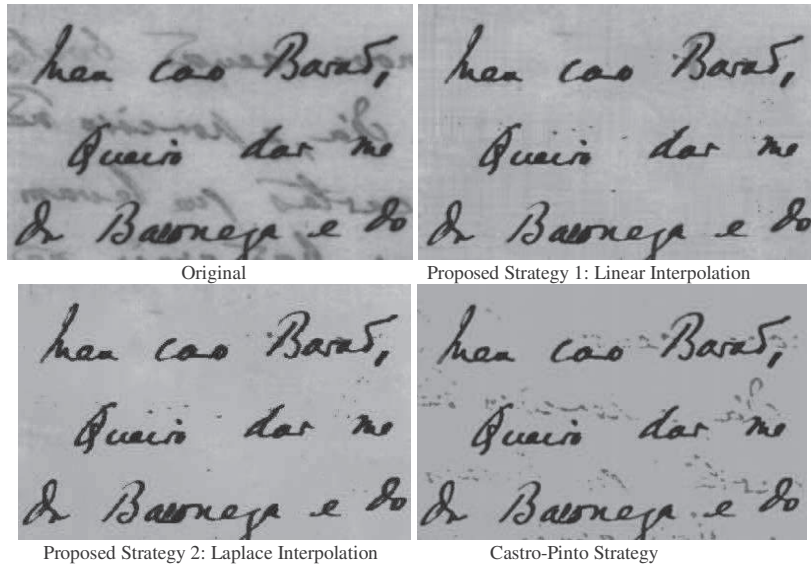 Meu caro Barão,
Queira dar me
da Baroneza e do
Original
Meu caro Barão,
Queira dar me
da Baroneza e do
Proposed Strategy 1: Linear Interpolation
Meu caro Barão,
Queira dar me
da Baroneza e do
Proposed Strategy 2: Laplace Interpolation
Meu caro Barão,
Queira dar me
da Baroneza e do
Castro-Pinto Strategy